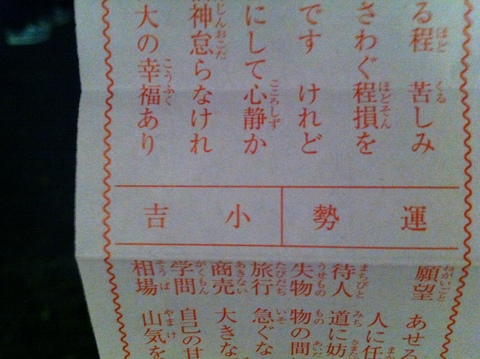 る程 苦しみ
さわぐ程損を
です けれど
にして心静か
神怠らなけれ
大の幸福あり
運勢
小吉
願望 あせ
人に
待人 道に妨
失物 物の間
旅行 急ぐな
商売 大きな
学問 自己の甘
相場 山気を